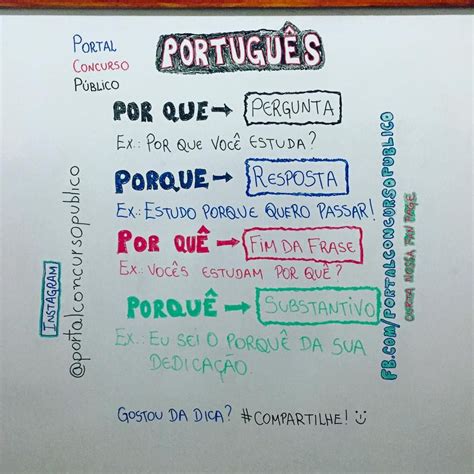 PORTAL
CONCURSO
PÚBLICO
PORTUGUÊS
POR QUE → PERGUNTA
EX.: POR QUE VOCÊ ESTUDA?
PORQUE → RESPOSTA
EX.: ESTUDO PORQUE QUERO PASSAR!
POR QUÊ → FIM DA FRASE
EX.: VOCÊS ESTUDAM POR QUÊ?
PORQUÊ → SUBSTANTIVO
EX.: EU SEI O PORQUÊ DA SUA
DEDICAÇÃO.
GOSTOU DA DICA? #COMPARTILHE!
INSTAGRAM
@portalconcursopublico
FB.COM/PORTALCONCURSOPUBLICO
CURTA NOSSA FAN PAGE